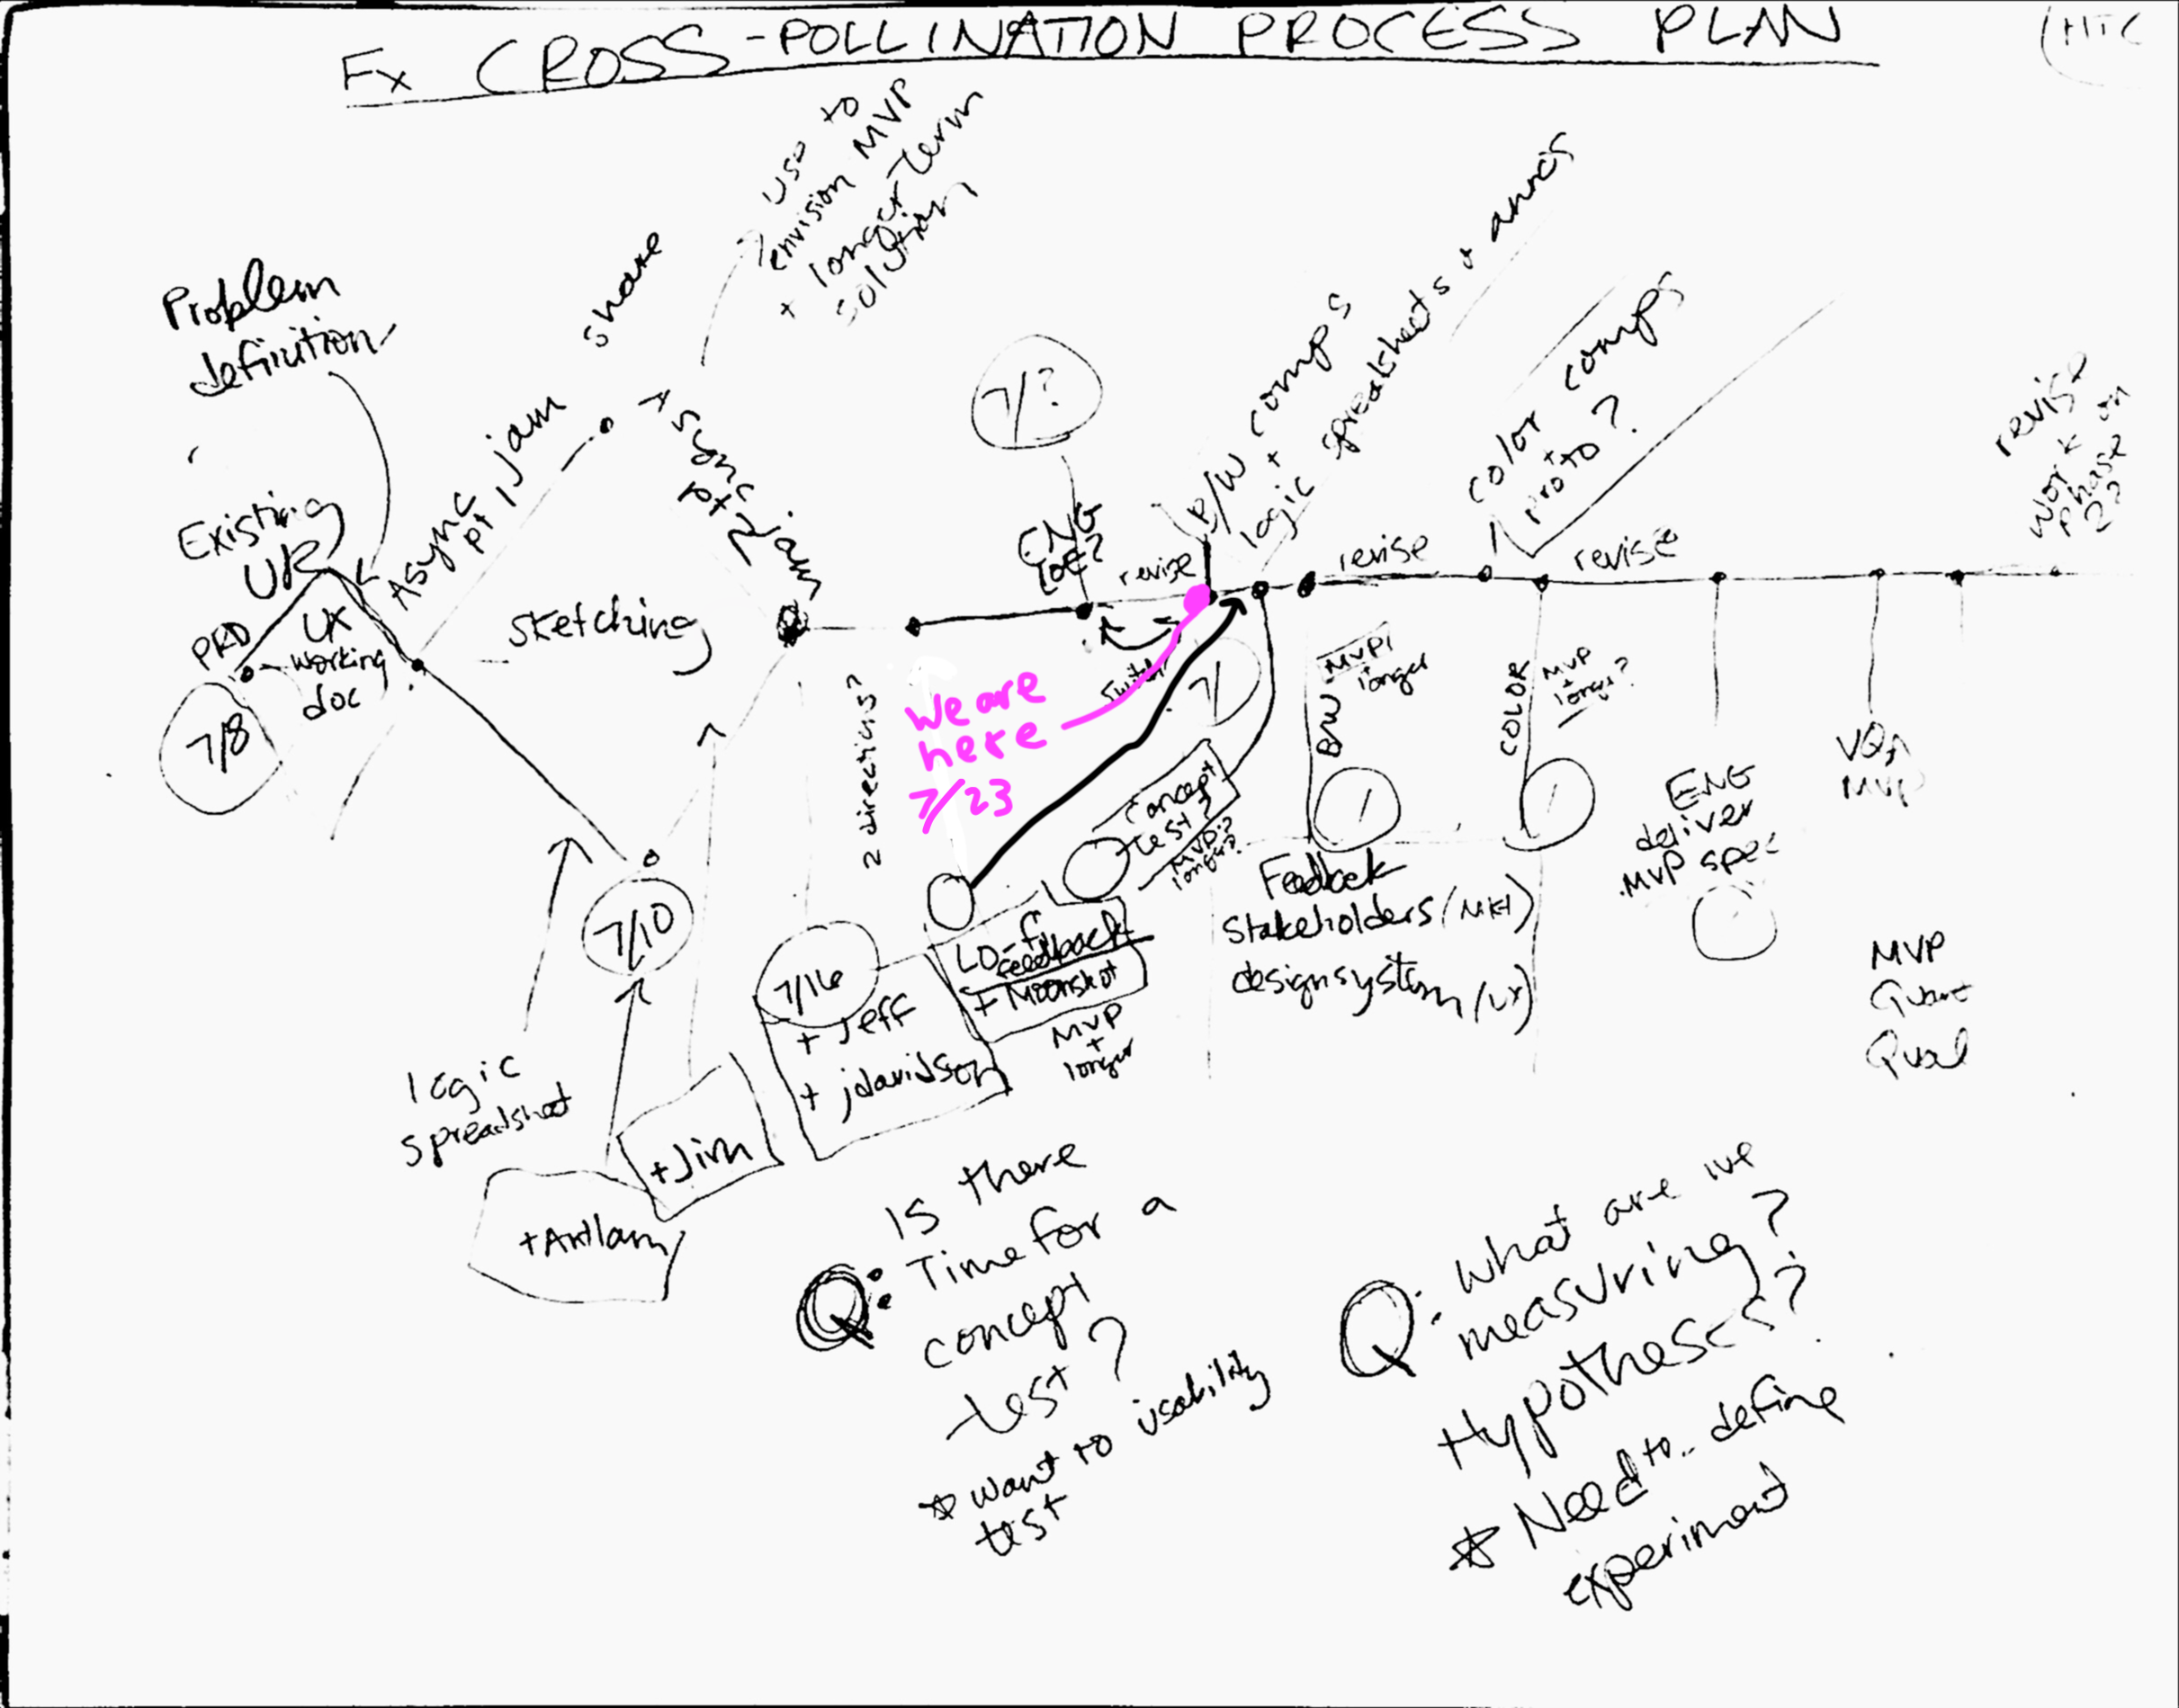 Fx CROSS-POLLINATION PROCESS PLAN
use to
envision MVP
+ longer-term
solution
Problem
definition
share
Async
pt 1, jam
Async jam
pt 2
Existing
UR
PRD
UX
working
doc
7/8
Sketching
7/?
ENG
LOE?
revise
B/W comps
+
logic spreadsheets + annos
revise
color comps
+
proto?
revise
revise
work on
phase
2?
switch
7/
we are
here
7/23
2 directions?
B/W
MVP
longer
COLOR
MVP
+
longer?
concept
test?
MVP?
longer?
7/10
7/16
+ Jeff
+ jdavidson
LO-fi
feedback
+ Moonshot
MVP
+
longer
Feedback
Stakeholders (MKT)
design system (UX)
ENG
deliver
MVP spec
VQA
MVP
MVP
Quant
Qual
logic
spreadsheet
+Jim
Q: Is there
Time for a
concept
test?
* want to usability
test
Q: What are we
measuring?
Hypotheses?
* Need to define
experiment